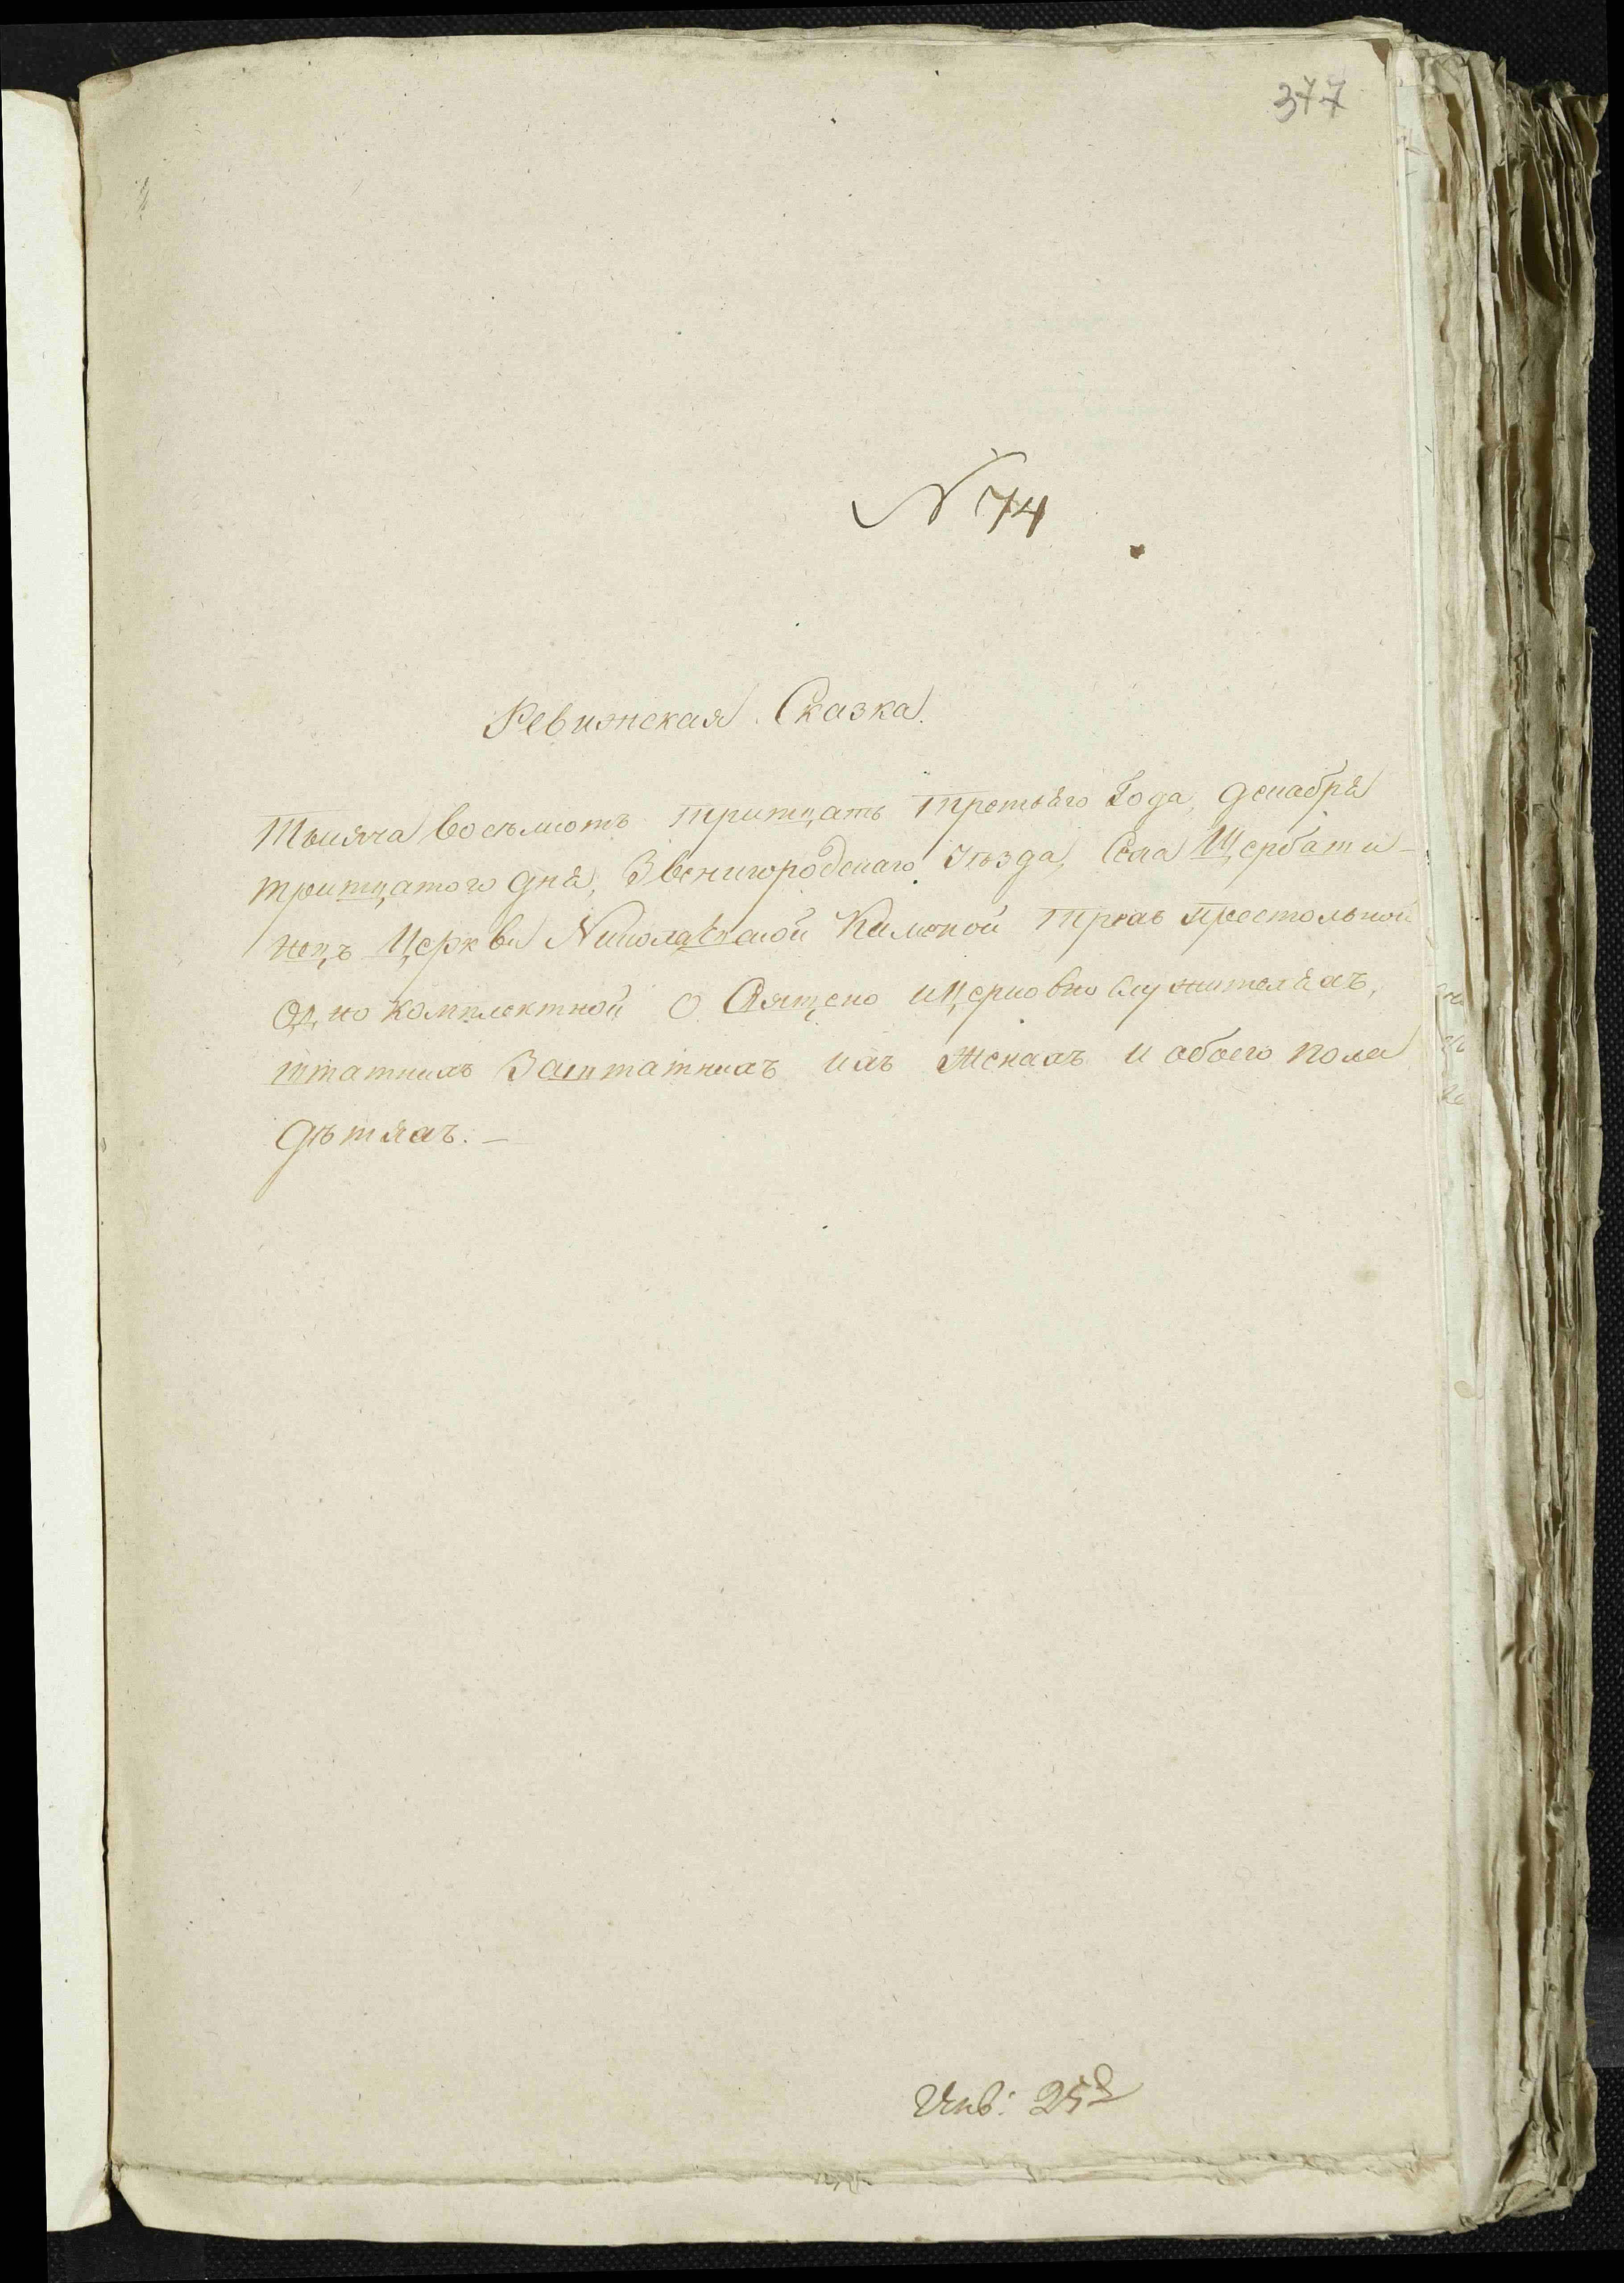 377
N 74
Ревижская Сказка.
Тысяча восемьсотъ тритцать третьяго Года, декабря
тритцатого дня, Звенигородскаго Уѣзда, Села Щербати-
нецъ Церкви Николаевской Каменой трехъ престольной
одно комплектной о Священо и церковно служителяхъ,
штатныхъ Заштатныхъ ихъ женахъ и обоего пола
дѣтяхъ. —
Янв: 25